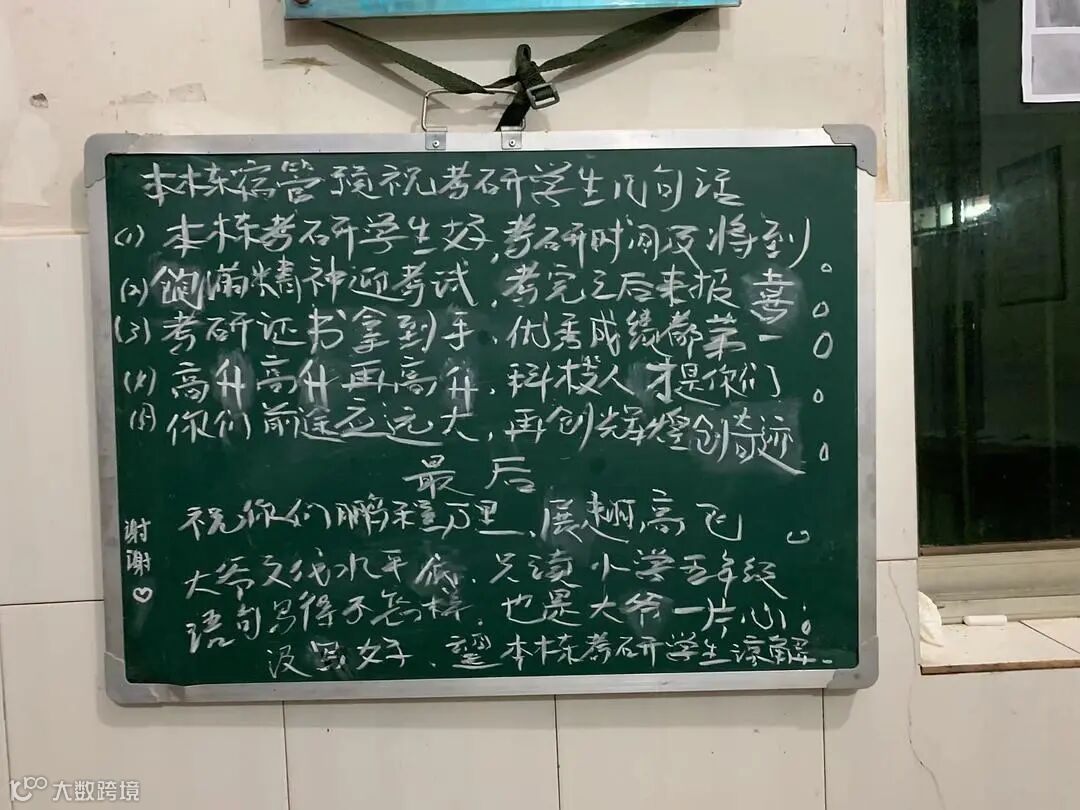 本栋宿管预祝考研学生几句话
(1) 本栋考研学生好,考研时间及将到。
(2) 饱满精神迎考试,考完之后来报喜。
(3) 考研证书拿到手,优秀成绩都第一。
(4) 高升高升再高升,科技人才是你们。
(5) 你们前途立远大,再创辉煌创奇迹。
最后
祝你们鹏程万里,展翅高飞。
谢谢♡
大爷文化水平底,只读小学五年级
语句写得不怎样,也是大爷一片心;
没写好,望本栋考研学生谅解.
大数跨境